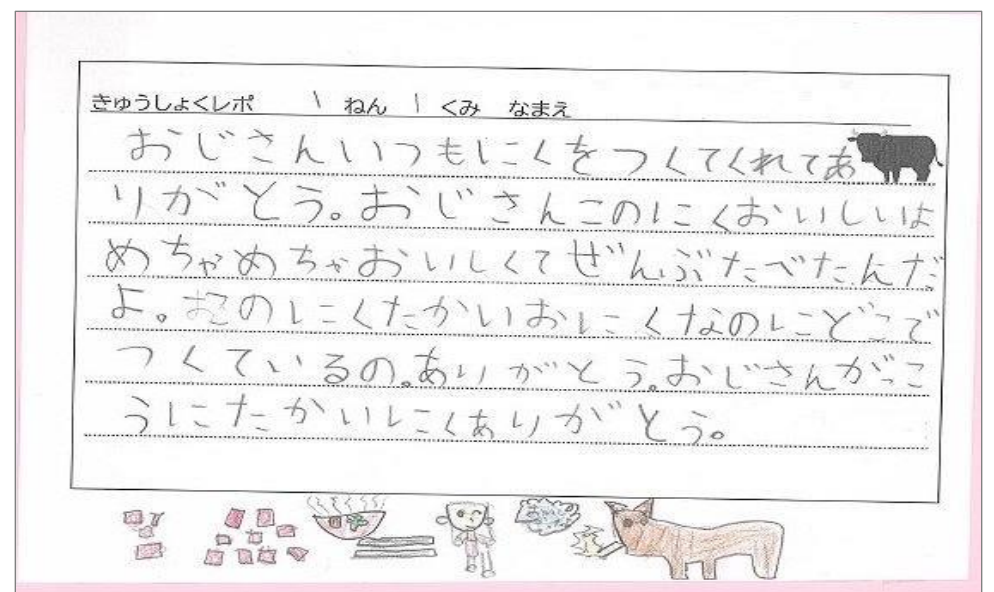 きゅうしょくレポ 1 ねん 1 くみ なまえ
おじさんいつもにくをつくてくれてあ
りがとう。おじさんこのにくおいしいは
めちゃめちゃおいしくてぜんぶたべたんだ
よ。このにくたかいおにくなのにどこで
つくているの。ありがとう。おじさんがっこ
うにたかいにくありがとう。